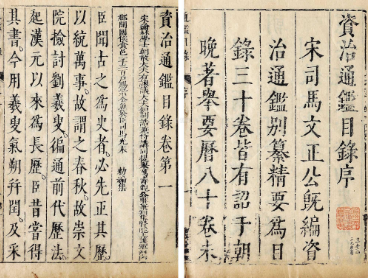 資治通鑑目錄序
宋司馬文正公旣編資
治通鑑別纂精要爲目
錄三十卷皆有詔于朝
晚著舉要曆八十卷未
資治通鑑目錄卷第一
臣聞古之爲史者必先正其曆
以統萬事故謂之春秋故崇文
院檢討劉羲叟徧通前代曆法
起漢元以來爲長曆臣昔嘗得
其書今用羲叟氣朔幷閏及采